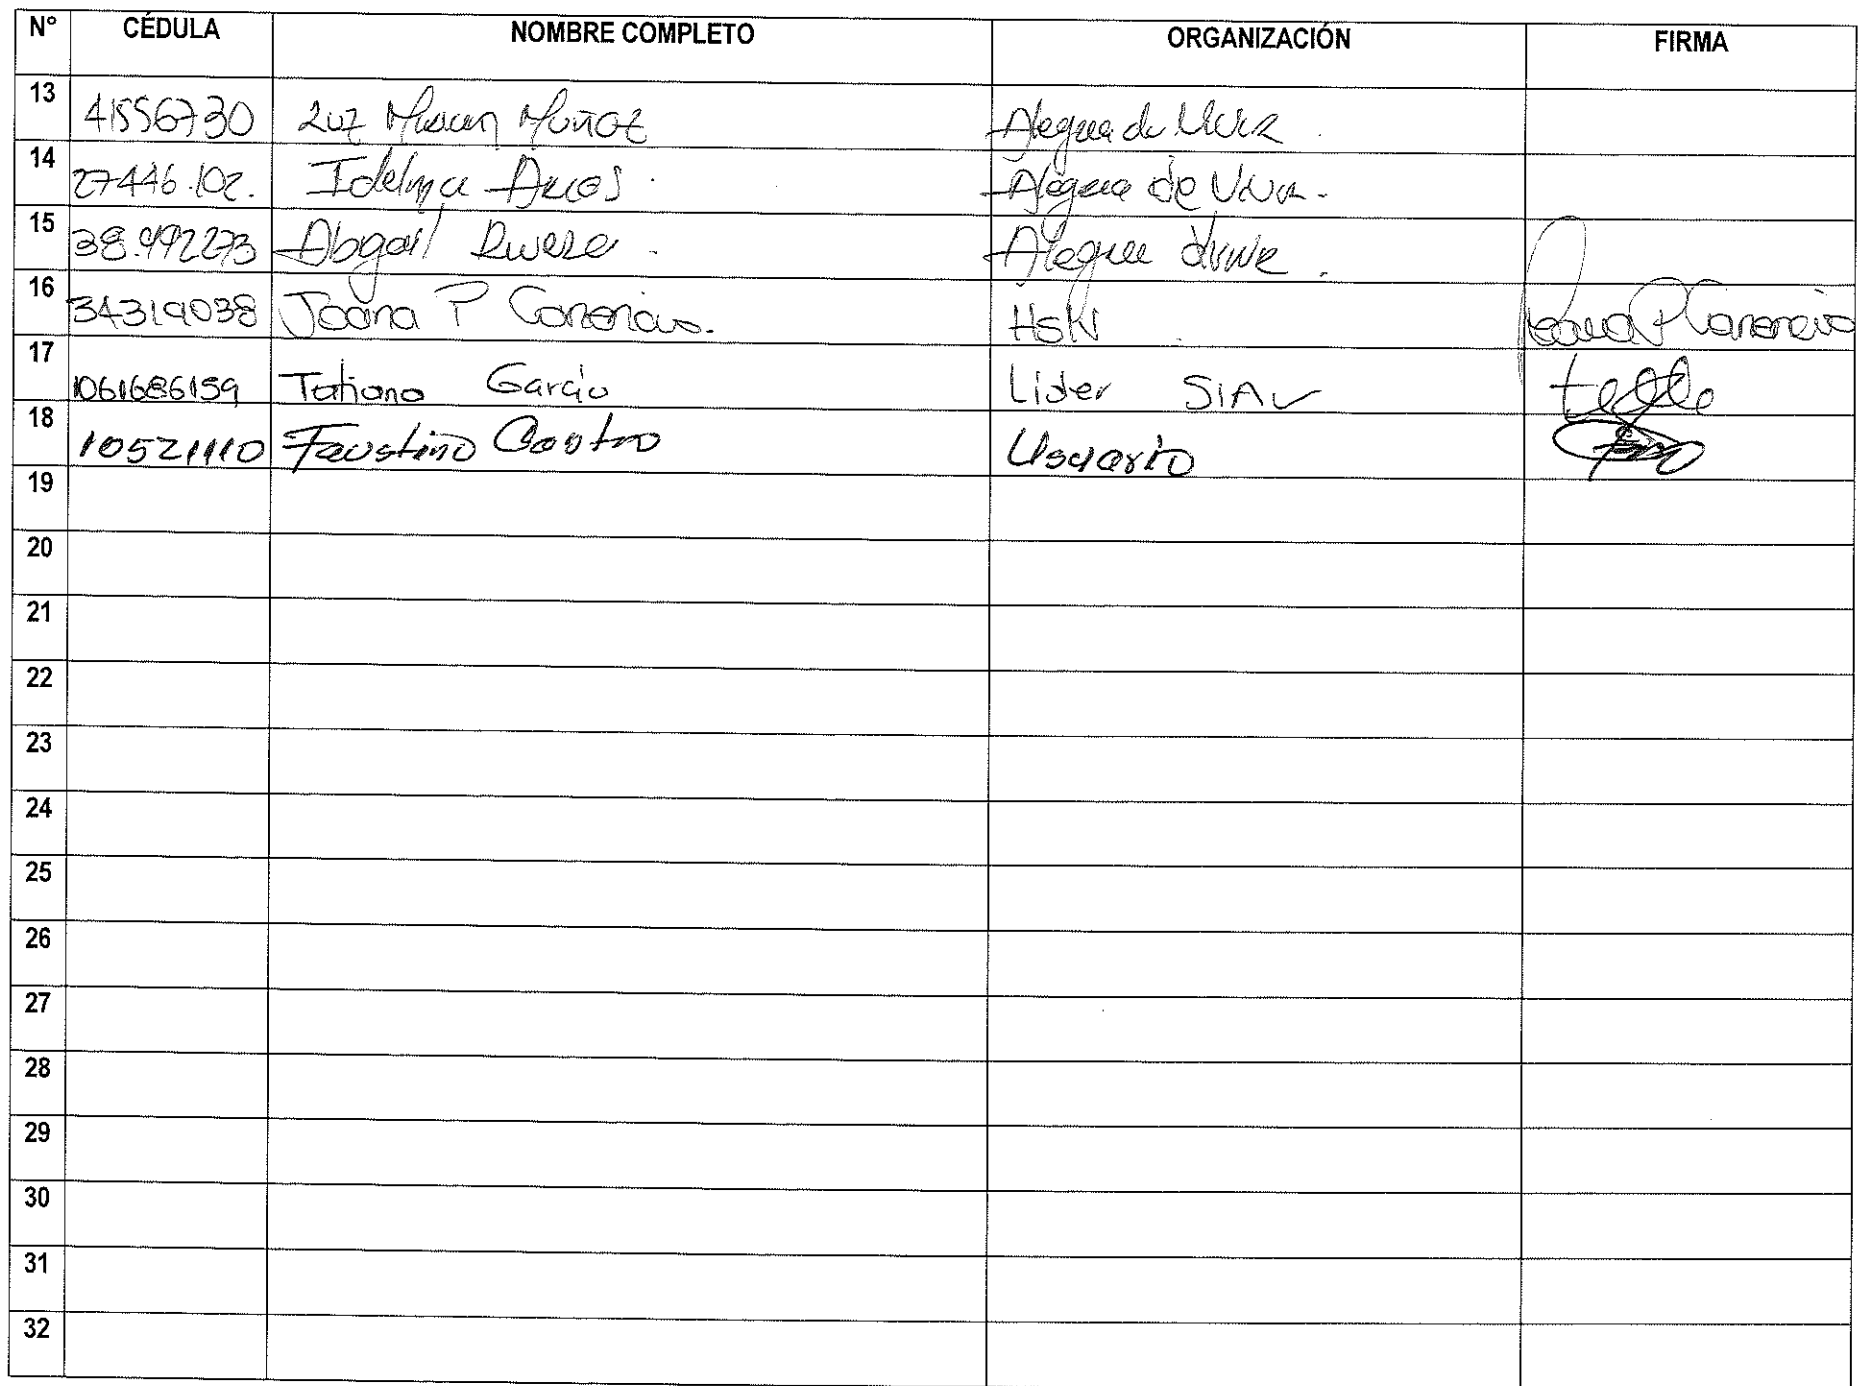 N° CÉDULA NOMBRE COMPLETO ORGANIZACIÓN FIRMA
13 41556730 Luz Miriam Muñoz Alegria de Vivir
14 27446.102. Idelma Arcos. Alegria de Vivir.
15 38.992273 Abgail Rivera. Alegria
16 34319038 Joana P Canencio.
17 1061686159 Tatiana Garcia Lider SIAU
18 10521110 Faustino Castro Usuario
19
20
21
22
23
24
25
26
27
28
29
30
31
32